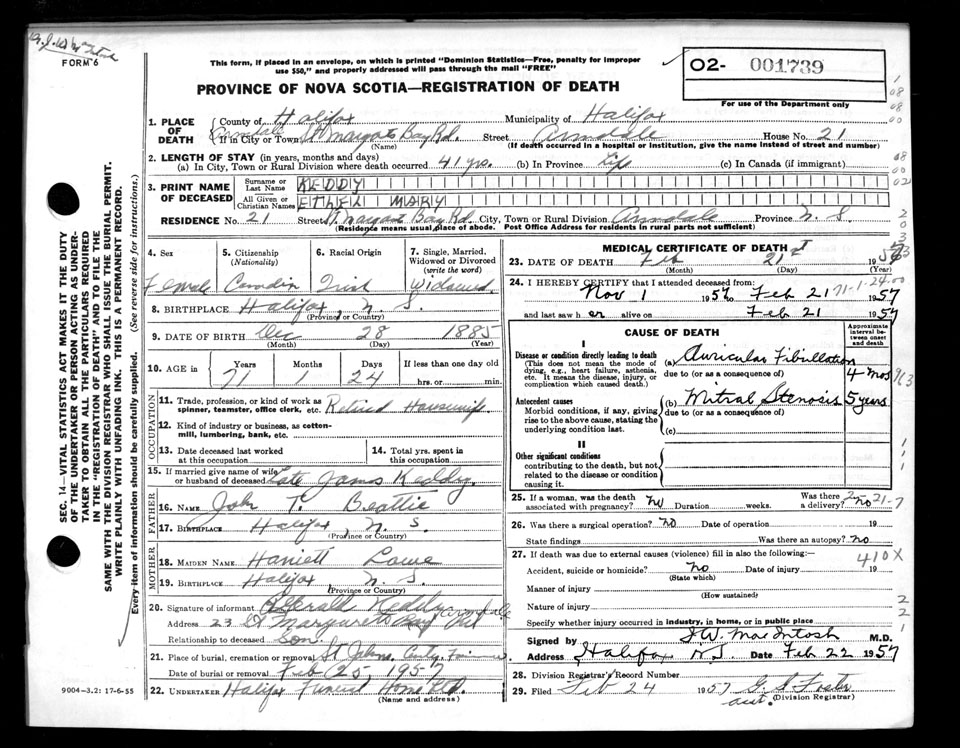 FORM 6
This form, if placed in an envelope, on which is printed "Dominion Statistics—Free, penalty for improper
use $50," and properly addressed will pass through the mail "FREE"
O2- 001739
For use of the Department only
PROVINCE OF NOVA SCOTIA—REGISTRATION OF DEATH
1. PLACE OF DEATH
County of Halifax Municipality of Halifax
Armdale
If in City or Town St Margarets Bay Rd. Street Armdale House No. 21
(Name) (If death occurred in a hospital or institution, give the name instead of street and number)
2. LENGTH OF STAY (in years, months and days)
(a) In City, Town or Rural Division where death occurred 41 yrs. (b) In Province Life (c) In Canada (if immigrant)
3. PRINT NAME OF DECEASED
Surname or Last Name KEDDY
All Given or Christian Names ETHEL MARY
RESIDENCE No. 21 Street St Margarets Bay Rd. City, Town or Rural Division Armdale Province N. S.
(Residence means usual place of abode. Post Office Address for residents in rural parts not sufficient)
4. Sex
Female
5. Citizenship
(Nationality)
Canadian
6. Racial Origin
Irish
7. Single, Married, Widowed or Divorced
(write the word)
Widowed
8. BIRTHPLACE Halifax, N. S.
(Province or Country)
9. DATE OF BIRTH Dec 28 1885
(Month) (Day) (Year)
10. AGE in
Years Months Days If less than one day old
71 1 24 hrs. or min.
OCCUPATION
11. Trade, profession, or kind of work as
spinner, teamster, office clerk, etc. Retired Housewife
12. Kind of industry or business, as cotton-
mill, lumbering, bank, etc.
13. Date deceased last worked
at this occupation
14. Total yrs. spent in
this occupation
15. If married give name of wife
or husband of deceased Late James Keddy
FATHER
16. NAME John T. Beattie
17. BIRTHPLACE Halifax, N. S.
(Province or Country)
MOTHER
18. MAIDEN NAME Harriett Lowe
19. BIRTHPLACE Halifax, N. S.
(Province or Country)
20. Signature of informant Gerald Keddy
Address 23 St Margarets Bay Rd Armdale
Relationship to deceased Son
21. Place of burial, cremation or removal St Johns Cmty, Fairview
Date of burial or removal Feb 25, 1957
22. UNDERTAKER Halifax Funeral Home Ltd.
(Name and address)
MEDICAL CERTIFICATE OF DEATH
23. DATE OF DEATH Feb 21st 1957
(Month) (Day) (Year)
24. I HEREBY CERTIFY that I attended deceased from:
Nov 1 1956 to Feb 21 1957
71-1-24-00
and last saw her alive on Feb 21 1957
CAUSE OF DEATH
Approximate interval between onset and death
I
Disease or condition directly leading to death
(This does not mean the mode of
dying, e.g., heart failure, asthenia,
etc. It means the disease, injury, or
complication which caused death.)
(a) Auricular Fibrillation 4 mos
due to (or as a consequence of)
Antecedent causes
Morbid conditions, if any, giving
rise to the above cause, stating the
underlying condition last.
(b) Mitral Stenosis 5 years
due to (or as a consequence of)
(c)
II
Other significant conditions
contributing to the death, but not
related to the disease or condition
causing it.
25. If a woman, was the death
associated with pregnancy? No Duration weeks. Was there a delivery? no
26. Was there a surgical operation? No Date of operation 19
State findings Was there an autopsy? no
410X
27. If death was due to external causes (violence) fill in also the following:—
Accident, suicide or homicide? No Date of injury 19
(State which)
Manner of injury
(How sustained)
Nature of injury
Specify whether injury occurred in industry, in home, or in public place
Signed by I W. MacIntosh M.D.
Address Halifax N.S. Date Feb 22 1957
28. Division Registrar's Record Number
29. Filed Feb 24 1957 G. S. Foster
asst. (Division Registrar)
SEC. 14—VITAL STATISTICS ACT MAKES IT THE DUTY
OF THE UNDERTAKER OR PERSON ACTING AS UNDER-
TAKER TO OBTAIN ALL THE PARTICULARS REQUIRED
IN THE "REGISTRATION OF DEATH" AND TO FILE THE
SAME WITH THE DIVISION REGISTRAR WHO SHALL ISSUE THE BURIAL PERMIT.
WRITE PLAINLY WITH UNFADING INK. THIS IS A PERMANENT RECORD.
Every item of information should be carefully supplied. (See reverse side for instructions.)
9004-3.2: 17-6-55